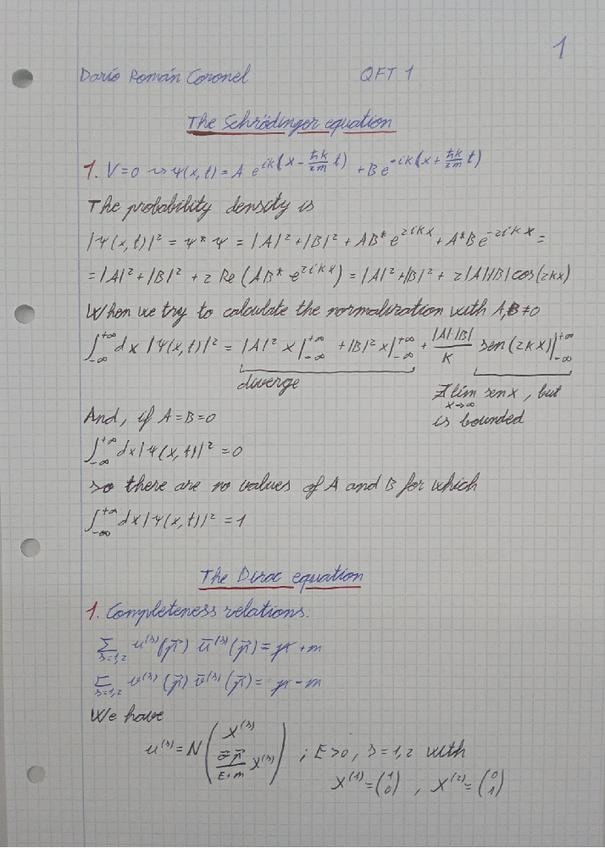 1
Darío Román Coronel QFT 1
The Schrödinger equation
1. V=0 ⇝ Ψ(x,t) = A e^{ik(x - ħk/2m t)} + B e^{-ik(x + ħk/2m t)}
The probability density is
|Ψ(x,t)|² = Ψ* Ψ = |A|² + |B|² + AB* e^{2ikx} + A*B e^{-2ikx} =
= |A|² + |B|² + 2 Re (AB* e^{2ikx}) = |A|² + |B|² + 2|A||B| cos(2kx)
When we try to calculate the normalization with A,B ≠ 0
∫_{-∞}^{+∞} dx |Ψ(x,t)|² = |A|² x|_{-∞}^{+∞} + |B|² x|_{-∞}^{+∞} + |A||B|/K sen(2kx)|_{-∞}^{+∞}
diverge ∄ lim_{x→∞} sen x, but
And, if A=B=0 is bounded
∫_{-∞}^{+∞} dx |Ψ(x,t)|² = 0
so there are no values of A and B for which
∫_{-∞}^{+∞} dx |Ψ(x,t)|² = 1
The Dirac equation
1. Completeness relations:
∑_{s=1,2} u^{(s)}(p⃗) ū^{(s)}(p⃗) = p̸ + m
∑_{s=1,2} v^{(s)}(p⃗) v̄^{(s)}(p⃗) = p̸ - m
We have
u^{(s)} = N ( χ^{(s)} ; σ⃗p⃗/(E+m) χ^{(s)} ) ; E>0, s=1,2 with
χ^{(1)} = (1 0), χ^{(2)} = (0 1)